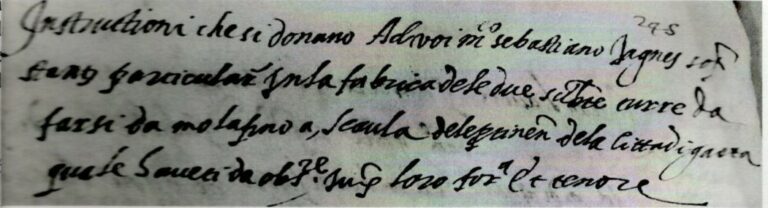 295
Instructioni che si donano Ad voi m.co sebastiano Jagnes
particular.r in la fabrica dele due sub.te turre da
farsi da mola fino a, scaula dele dela Citta di gaeta
quale haveti da obs.re Jux.a loro for.a et tenore